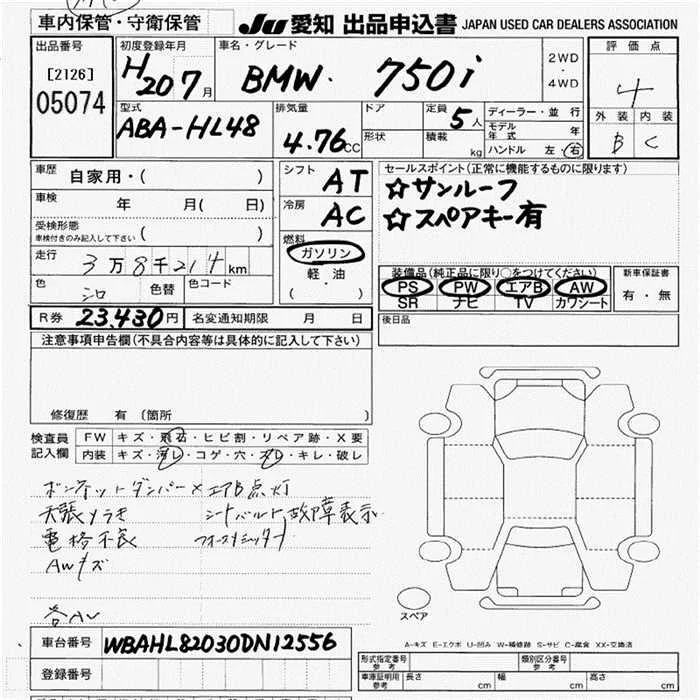 車内保管・守衛保管
JU 愛知 出品申込書 JAPAN USED CAR DEALERS ASSOCIATION
出品番号
[2126]
05074
初度登録年月
H20 7月
車名・グレード
BMW. 750i
2WD
・
4WD
評価点
4
外装 内装
B C
型式
ABA-HL48
排気量
4.76CC
ドア
形状
定員 5人
積載 kg
ディーラー・並行
モデル年式 年
ハンドル 左・右
車歴 自家用・( )
車検 年 月( 日)
受検形態
車検付きのみ記入して下さい ( )
走行 3万8千214km
色 シロ 色替 色コード
シフト AT
冷房 AC
燃料
ガソリン
軽・油
( ・ )
セールスポイント(正常に機能するものに限ります)
☆サンルーフ
☆スペアキー有
装備品(純正品に限り○をつけてください)
PS PW エアB AW
SR ナビ TV カワシート
新車保証書
有・無
R券 23,430円 名変通知期限 月 日
後日品
注意事項申告欄(不具合内容等は具体的に記入して下さい)
修復歴 有 (箇所 )
検査員
記入欄
FW キズ・飛石・ヒビ割・リペア跡・X要
内装 キズ・汚レ・コゲ・穴・スレ・キレ・破レ
ボンネットダンパー× エアB点灯
天張リラモ シートベルト故障表示
電格不良
AWキズ
スペア
A-キズ E-エクボ U-凹み W-補修跡 S-サビ C-腐食 XX-交換済
車台番号 WBAHL82030DN12556
登録番号
形式指定番号
参考
類別区分番号
参考
車庫証明用
参考
長さ cm 幅 cm 高さ cm